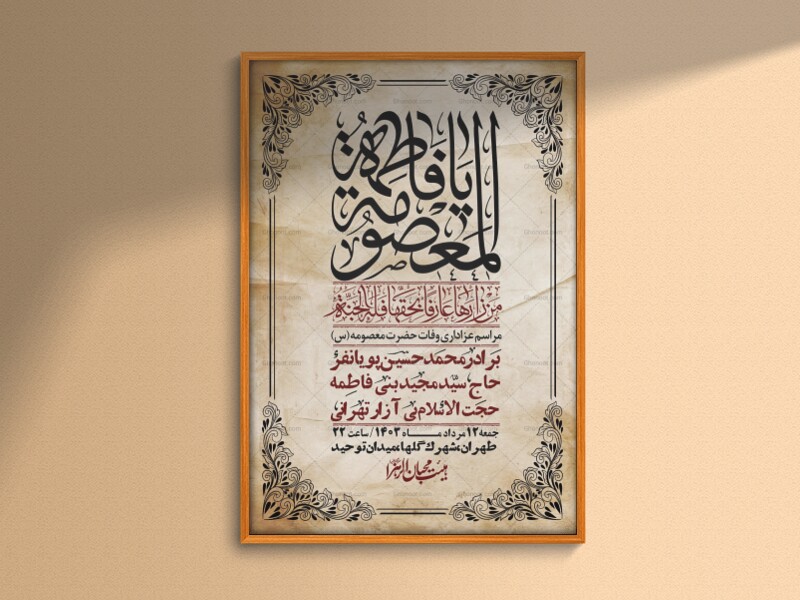 یا فاطمة
المعصومة
من زارها عارفا بحقها فله الجنة
مراسم عزاداری وفات حضرت معصومه (س)
برادر محمدحسین پویانفر
حاج سیدمجید بنی فاطمه
حجت الاسلام بی آزار تهرانی
جمعه ۱۲ مرداد مــاه ۱۴۰۳ / ساعت ۲۲
طهران، شهرک گلها، میدان توحید
هیئت محبان الزهرا